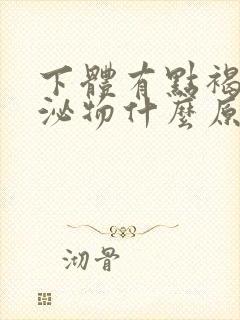 下體有點褐
泌物什麼原
沏骨